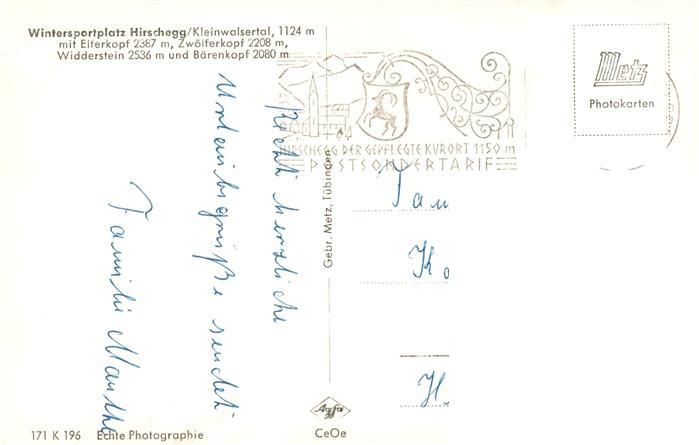 Wintersportplatz Hirschegg/Kleinwalsertal, 1124 m
mit Elferkopf 2387 m, Zwölferkopf 2208 m,
Widderstein 2536 m und Bärenkopf 2080 m
HIRSCHEGG DER GEPFLEGTE KURORT 1150 m
POSTSONDERTARIF
Metz
Photokarten
Recht herzliche
Urlaubsgrüße sendet
Familie
Gebr. Metz, Tübingen
Fam
Ko
H.
Agfa
171 K 196 Echte Photographie
CeOe